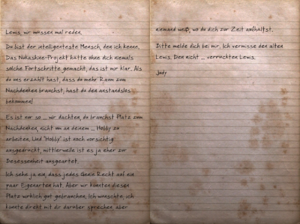 Lewis, wir müssen mal reden.
Du bist der intelligenteste Mensch, den ich kenne.
Das Nahashin-Projekt hätte ohne dich niemals
solche Fortschritte gemacht, das ist mir klar. Als
du uns erzählt hast, dass du mehr Raum zum
Nachdenken brauchst, hast du den anstandslos
bekommen!
Es ist nur so ... wir dachten, du brauchst Platz zum
Nachdenken, nicht um an deinem ... Hobby zu
arbeiten. Und "Hobby" ist noch vorsichtig
ausgedrückt, mittlerweile ist es ja eher zur
Besessenheit ausgeartet.
Ich sehe ja ein, dass jedes Genie Recht auf ein
paar Eigenarten hat. Aber wir könnten diesen
Platz wirklich gut gebrauchen. Ich wünschte, ich
könnte direkt mit dir darüber sprechen, aber
niemand weiß, wo du dich zur Zeit aufhältst.
Bitte melde dich bei mir. Ich vermisse den alten
Lewis. Den nicht ... verrückten Lewis.